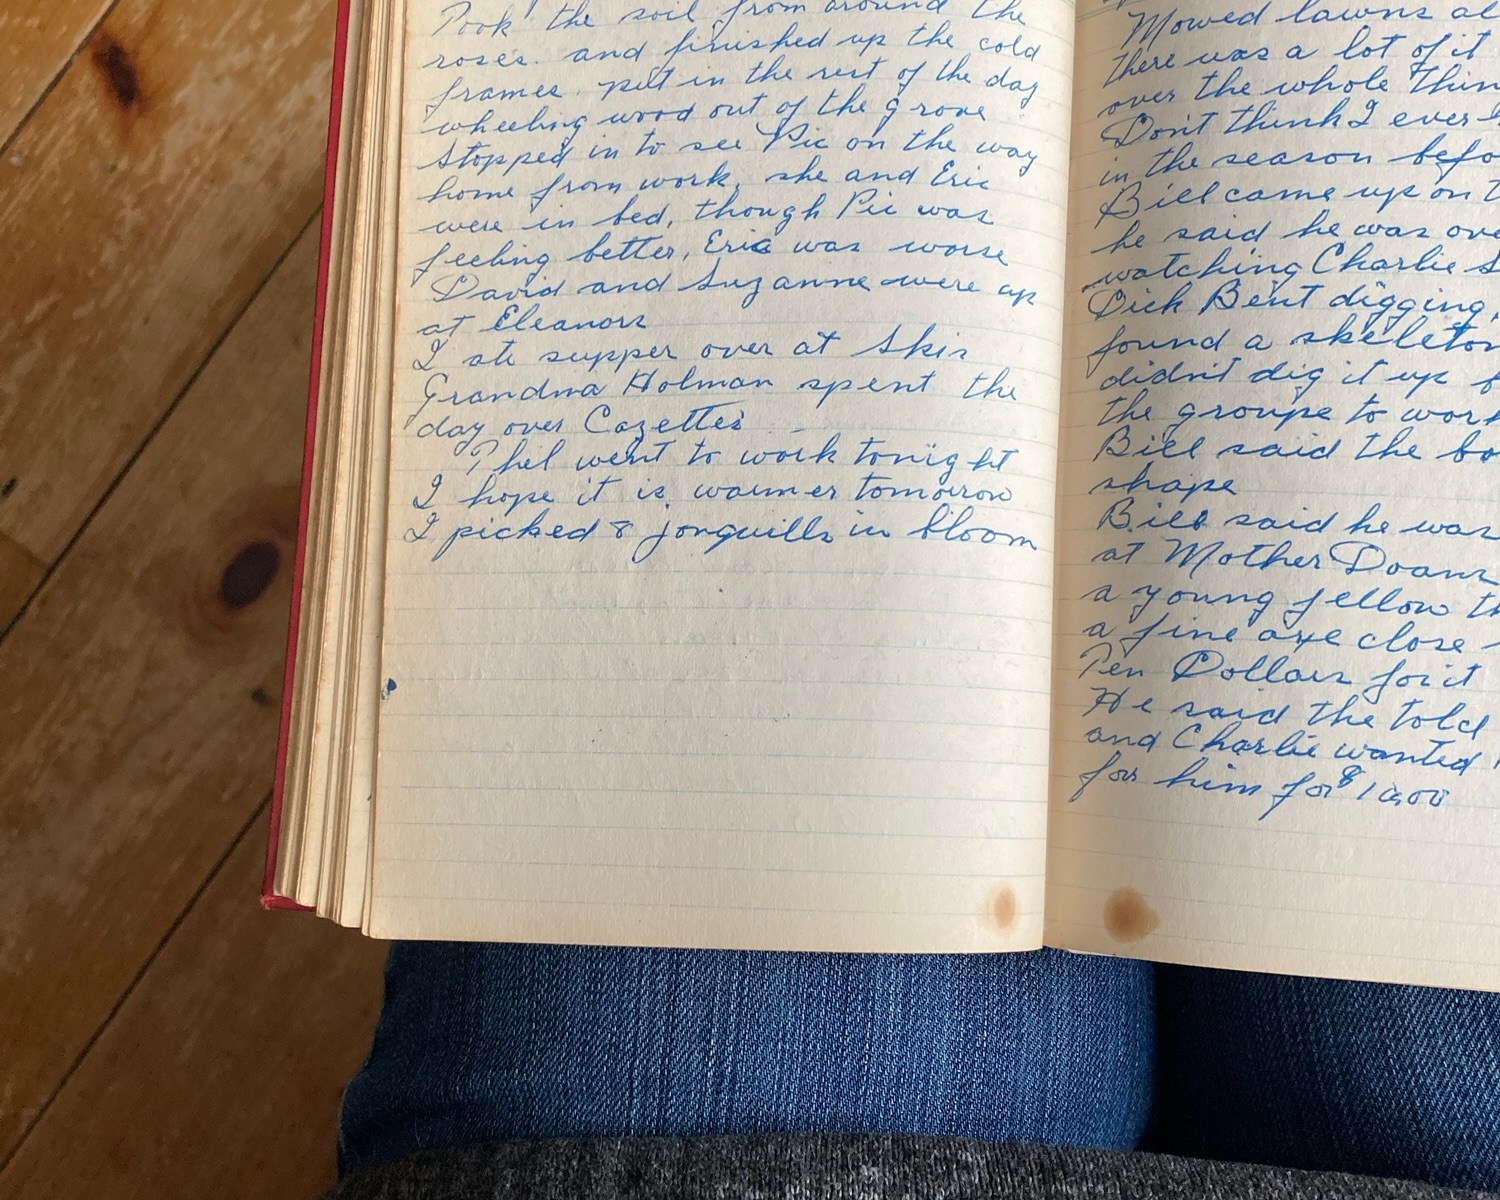 Took the soil from around the
roses. and finished up the cold
frames. put in the rest of the day
wheeling wood out of the grove
Stopped in to see Pic on the way
home from work, she and Eric
were in bed, though Pic was
feeling better, Eric was worse
David and Suzanne were up
at Eleanors
I ate supper over at Skis
Grandma Holman spent the
day over Cozettes
Phil went to work tonight
I hope it is warmer tomorrow
I picked 8 jonquills in bloom
Mowed lawns al
there was a lot of it
over the whole thin
Don't think I ever
in the season befo
Bill came up on
he said he was ove
watching Charlie S
Dick Bent digging,
found a skeleton
didn't dig it up
the groupe to work
Bill said the bo
shape
Bill said he was
at Mother Doans
a young fellow th
a fine axe close
Ten Dollars for it
He said the told
and Charlie wanted
for him for $10.00